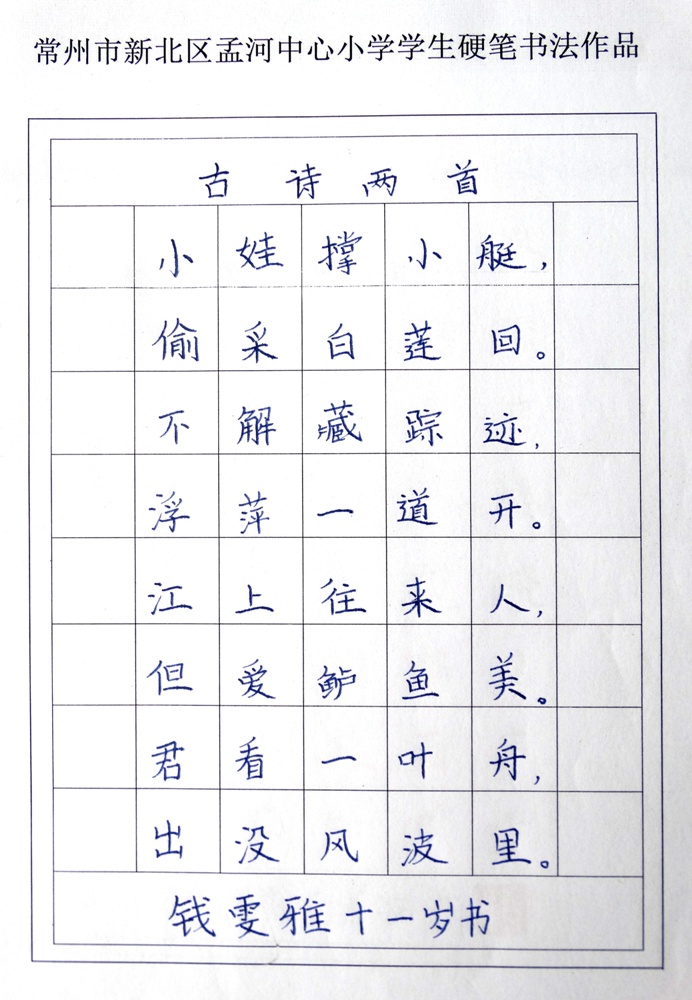 常州市新北区孟河中心小学学生硬笔书法作品
古诗两首
小娃撑小艇，
偷采白莲回。
不解藏踪迹，
浮萍一道开。
江上往来人，
但爱鲈鱼美。
君看一叶舟，
出没风波里。
钱雯雅十一岁书